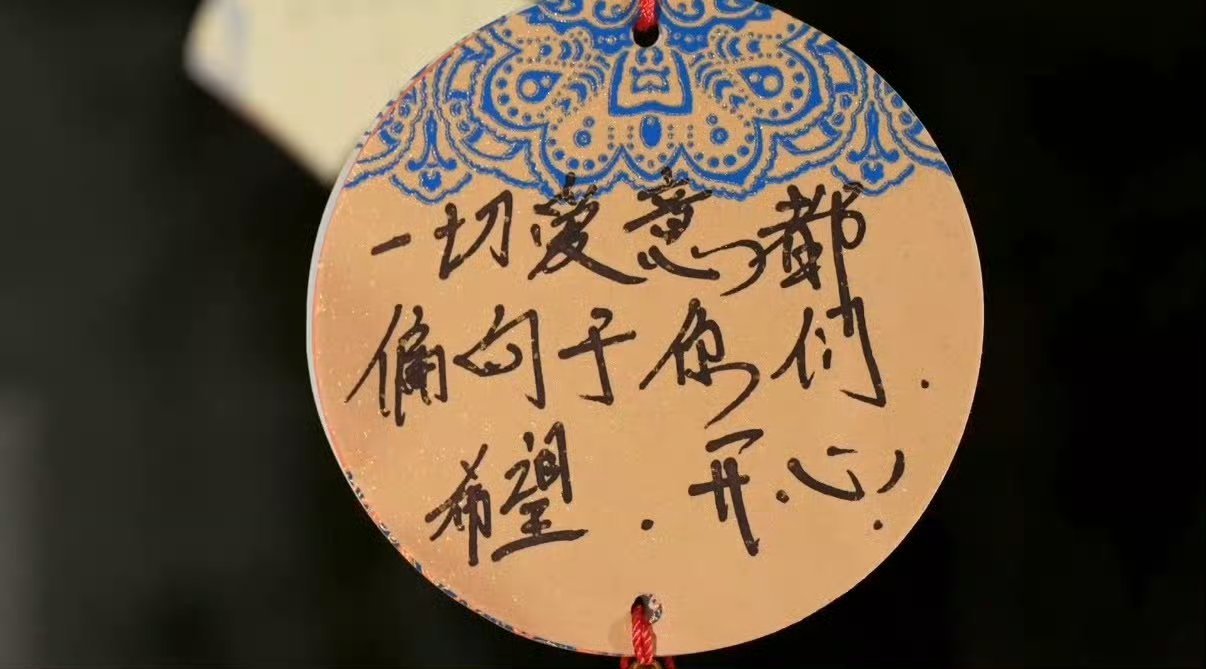 一切爱意，都
偏向于你们.
希望.开心.